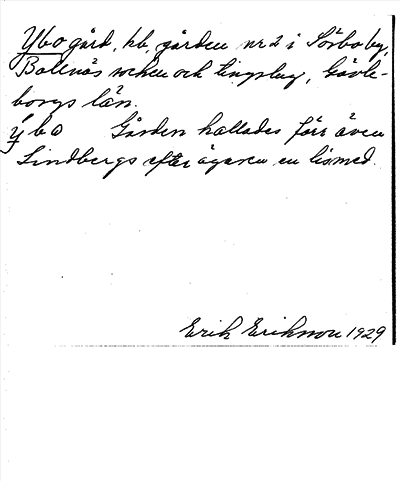 Ybo gård, hb. gården nr 2 i Sörbo by,
Bollnäs socken och tingslag, Gävle-
borgs län.
ýbo Gården kallades förr även
Lindbergs efter ägaren en lismed.
Erik Eriksson 1929